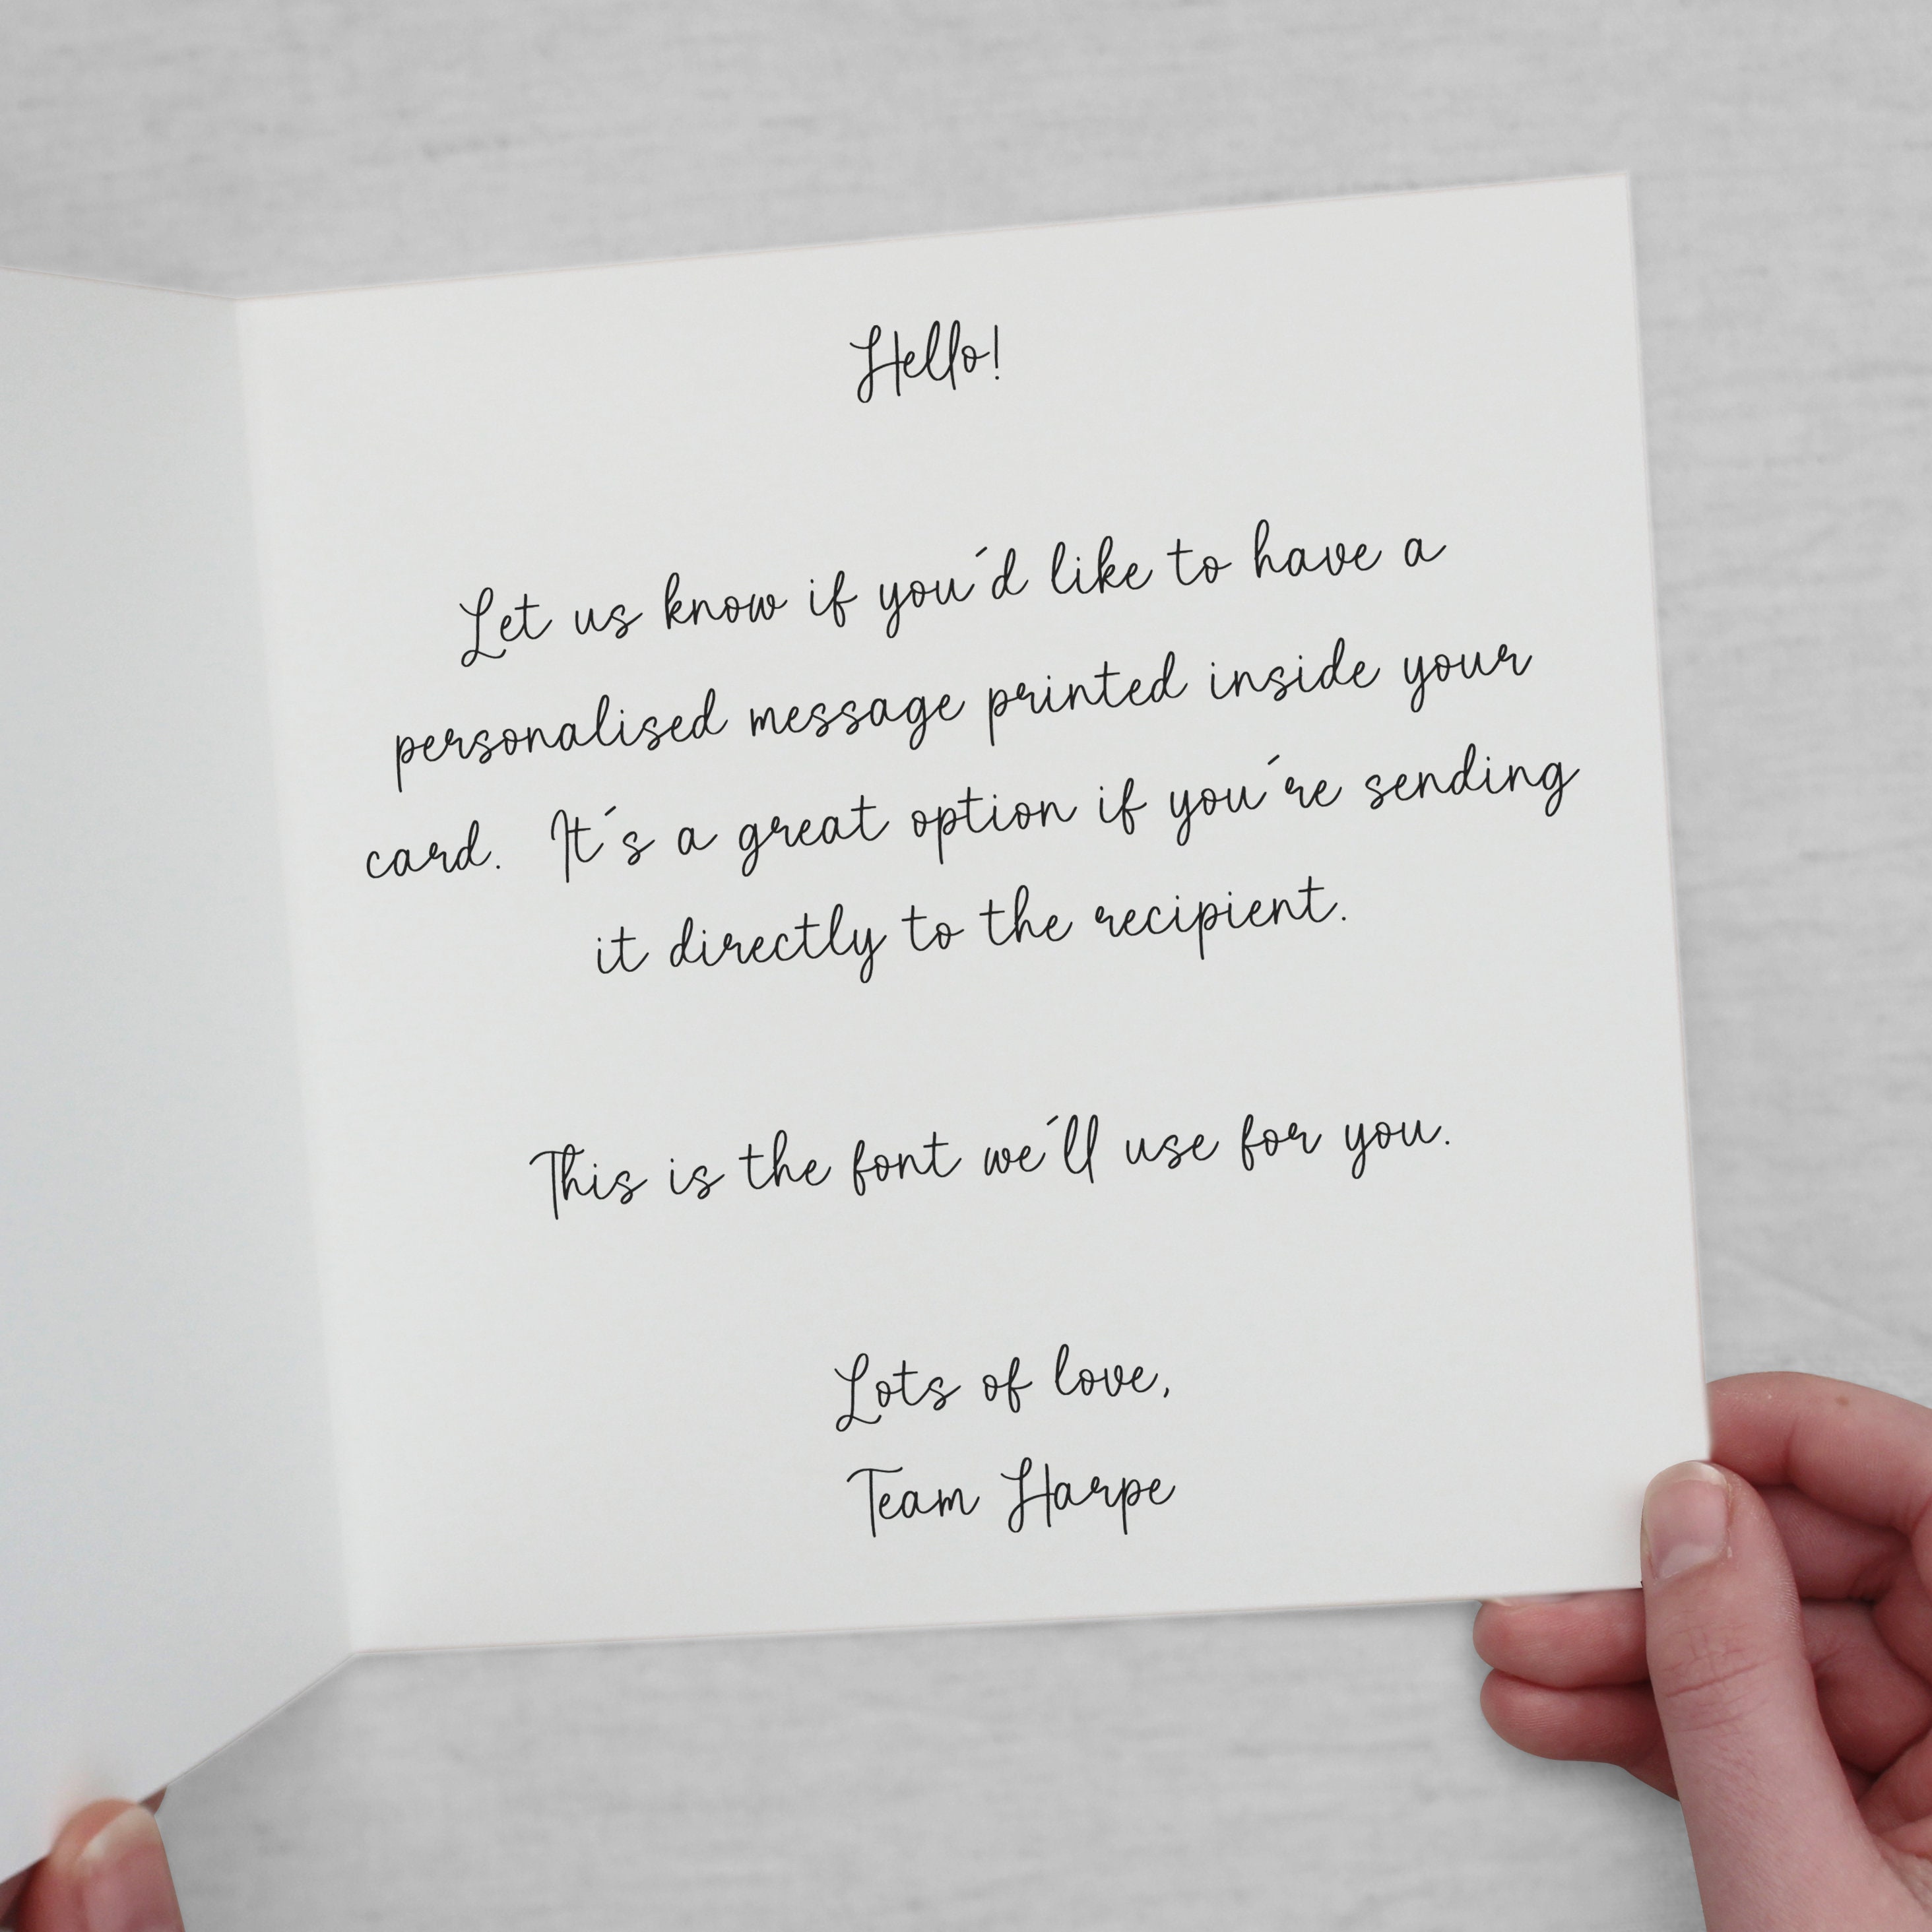 Hello!
Let us know if you´d like to have a
personalised message printed inside your
card. It´s a great option if you´re sending
it directly to the recipient.
This is the font we´ll use for you.
Lots of love,
Team Harpe